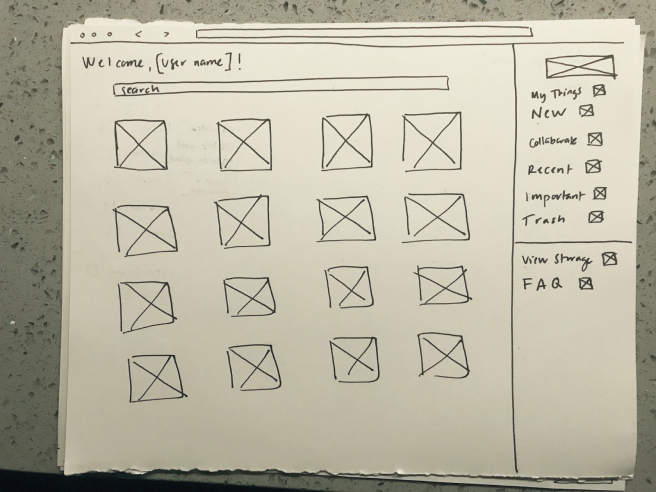 Welcome, [user name]!
search
My Things
New
Collaborate
Recent
Important
Trash
View Storage
FAQ